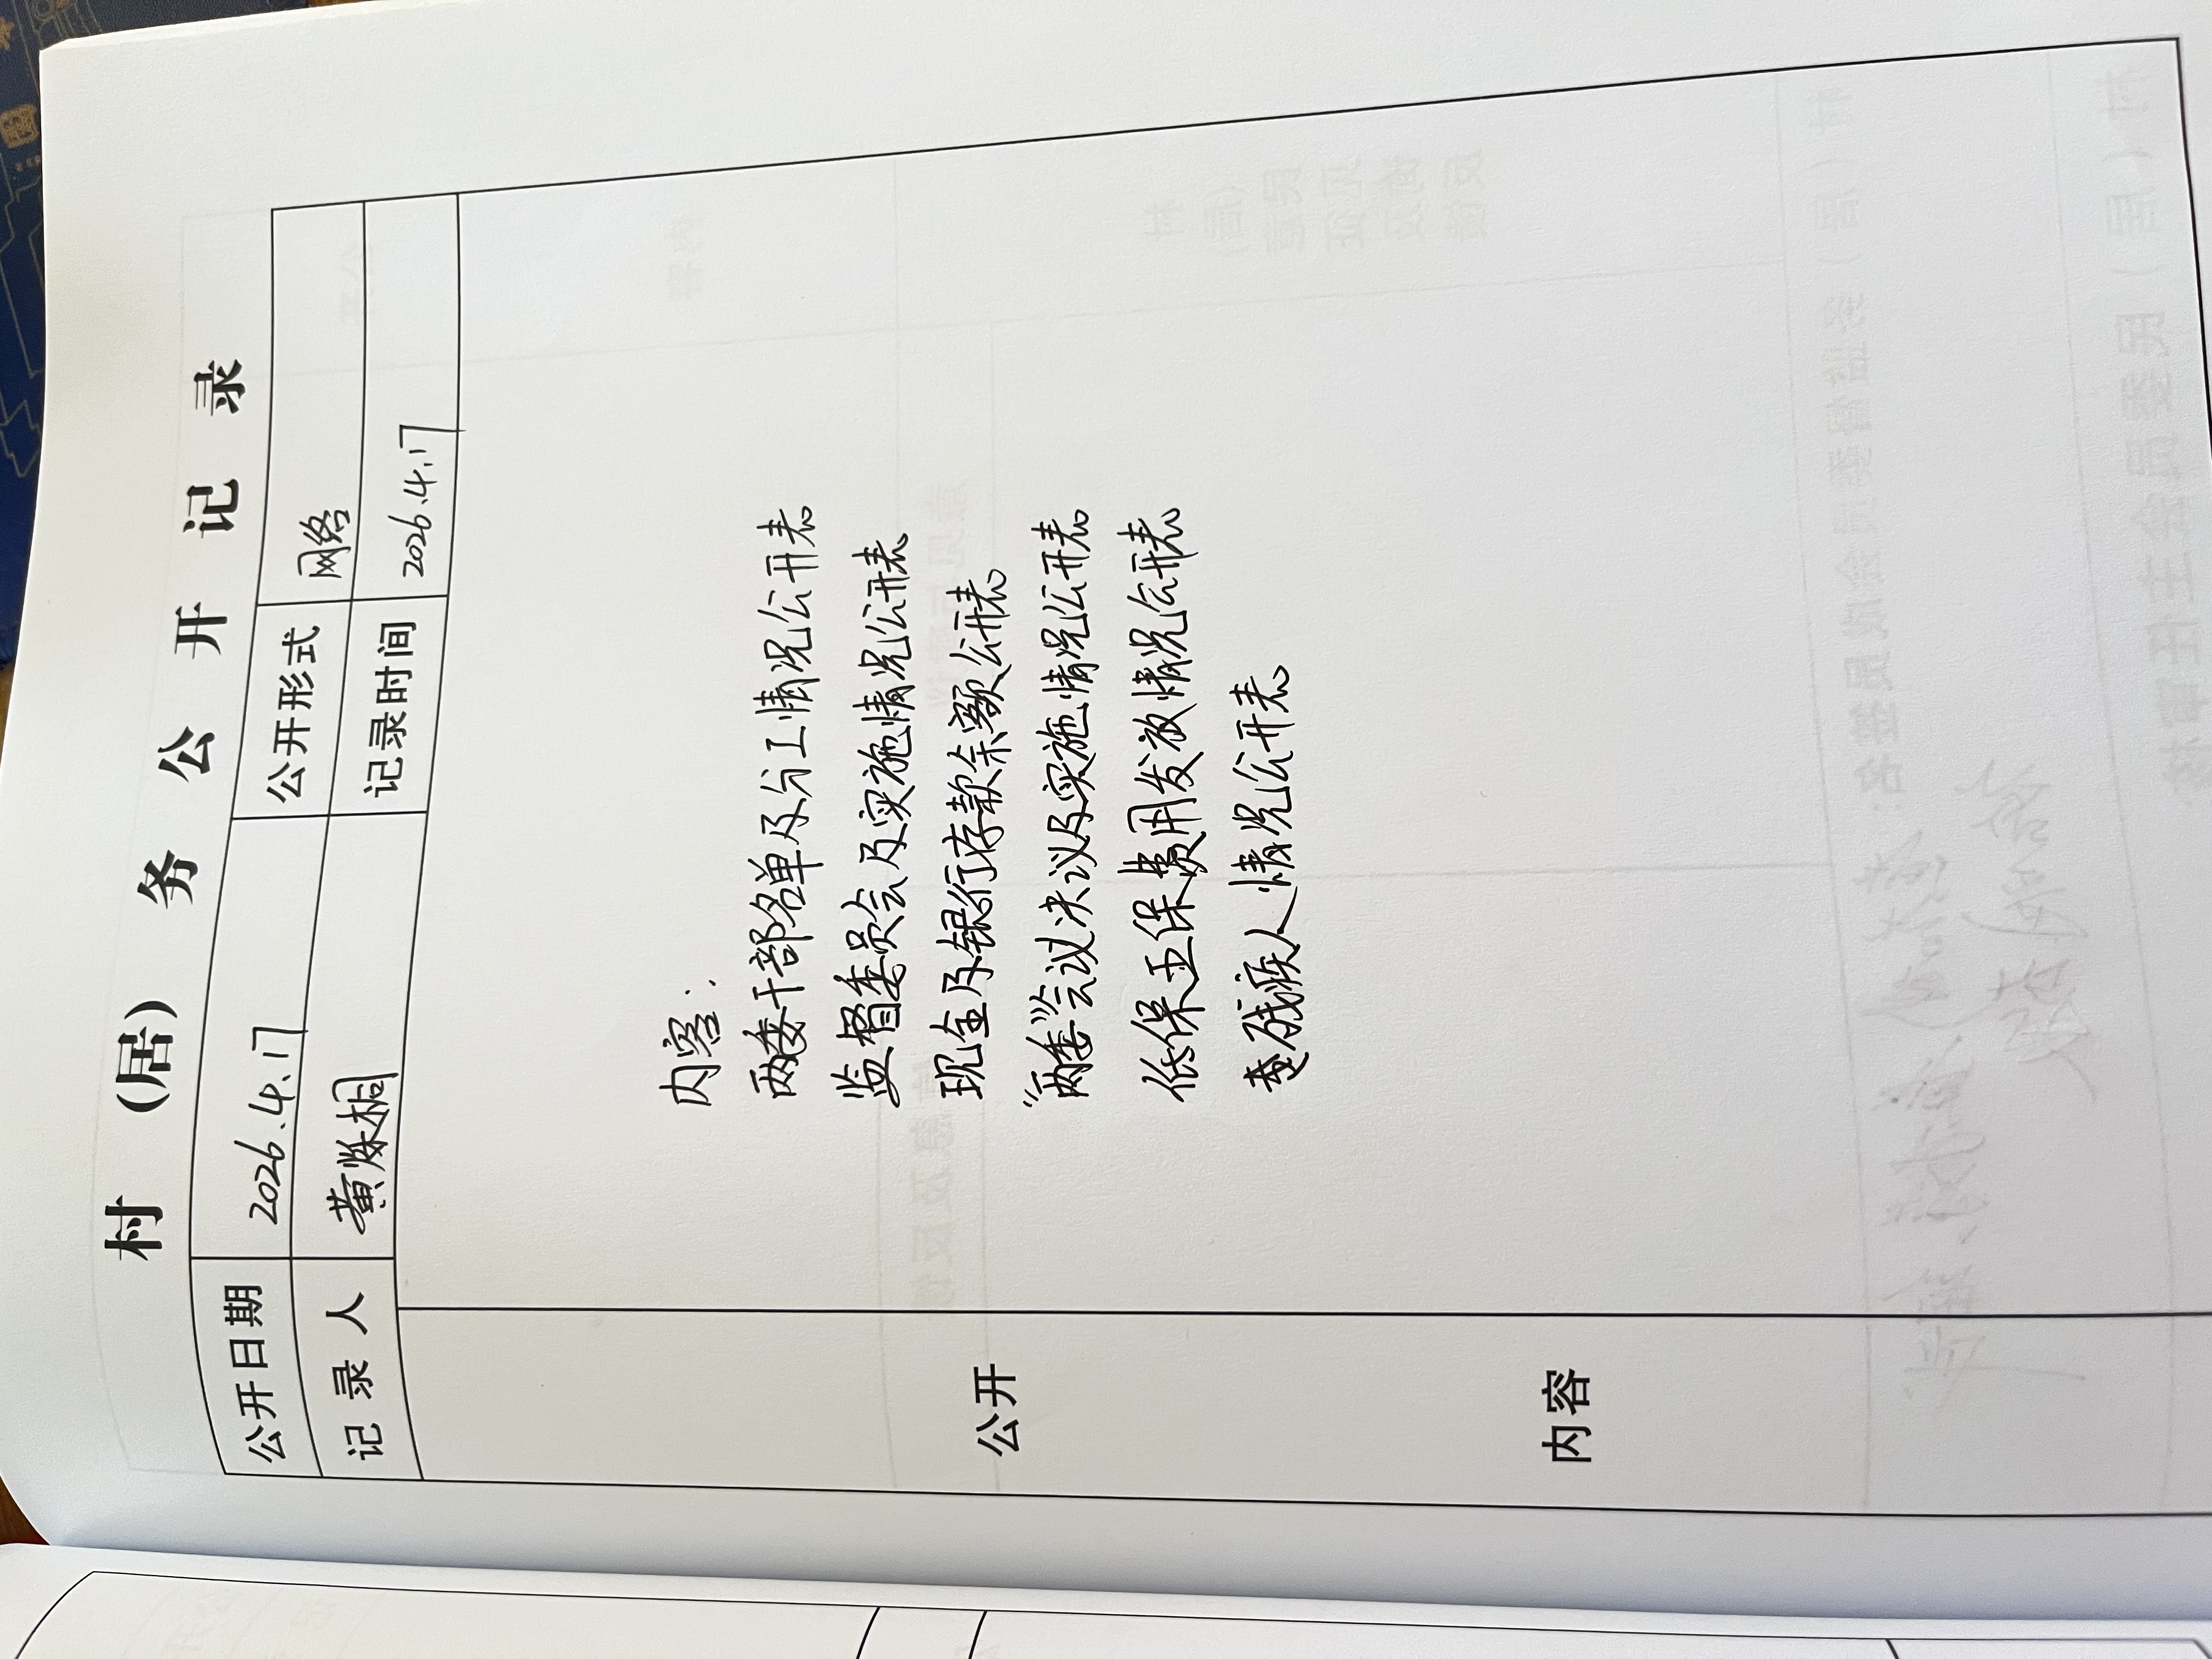 村（居）务公开记录
公开日期 2026.4.17 公开形式 网络
记录人 黄烁桐 记录时间 2026.4.17
公开内容
内容：
两委干部名单及分工情况公开表
监督委员会及实施情况公开表
现金及银行存款余额公开表
“两委”会议决议及实施情况公开表
低保五保费用发放情况公开表
残疾人情况公开表